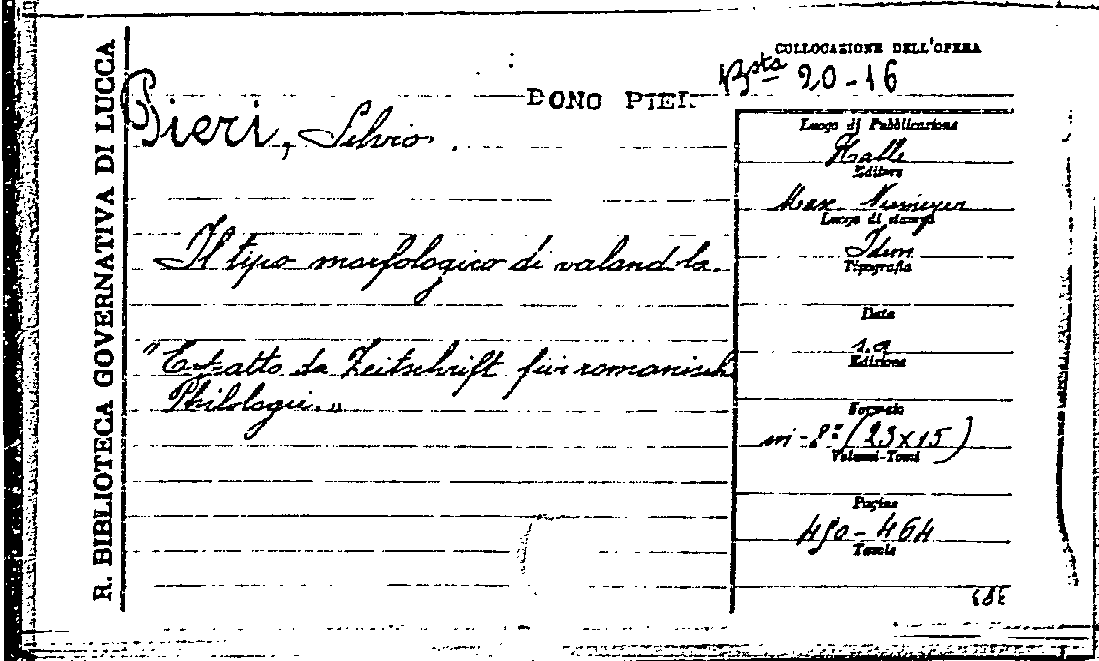 R. BIBLIOTECA GOVERNATIVA DI LUCCA
COLLOCAZIONE DELL'OPERA
Bsta 20-16
DONO PIERI
Pieri, Silvio.
Il tipo morfologico di valand-la.
"Estratto da Zeitschrift für romanische
Philologie."
Luogo di Pubblicazione
Halle
Editore
Max Niemeyer
Luogo di stampa
Idem
Tipografia
Data
s.a
Edizione
Formato
in-8º (23x15)
Volumi-Tomi
Pagine
450-464
Tavole